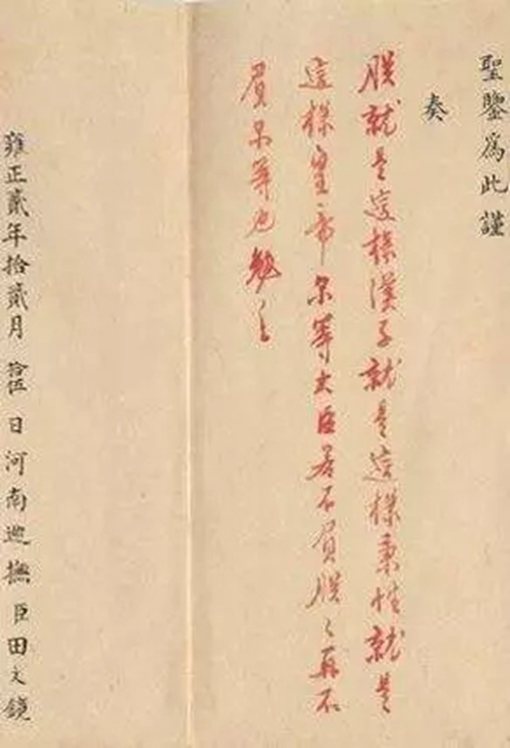 聖鑒為此謹
奏
朕就是這樣漢子就是這樣秉性就是
這樣皇帝尔等大臣若不負朕〻再不
負尔等也勉之
雍正貳年拾貳月拾伍日河南巡撫臣田文鏡